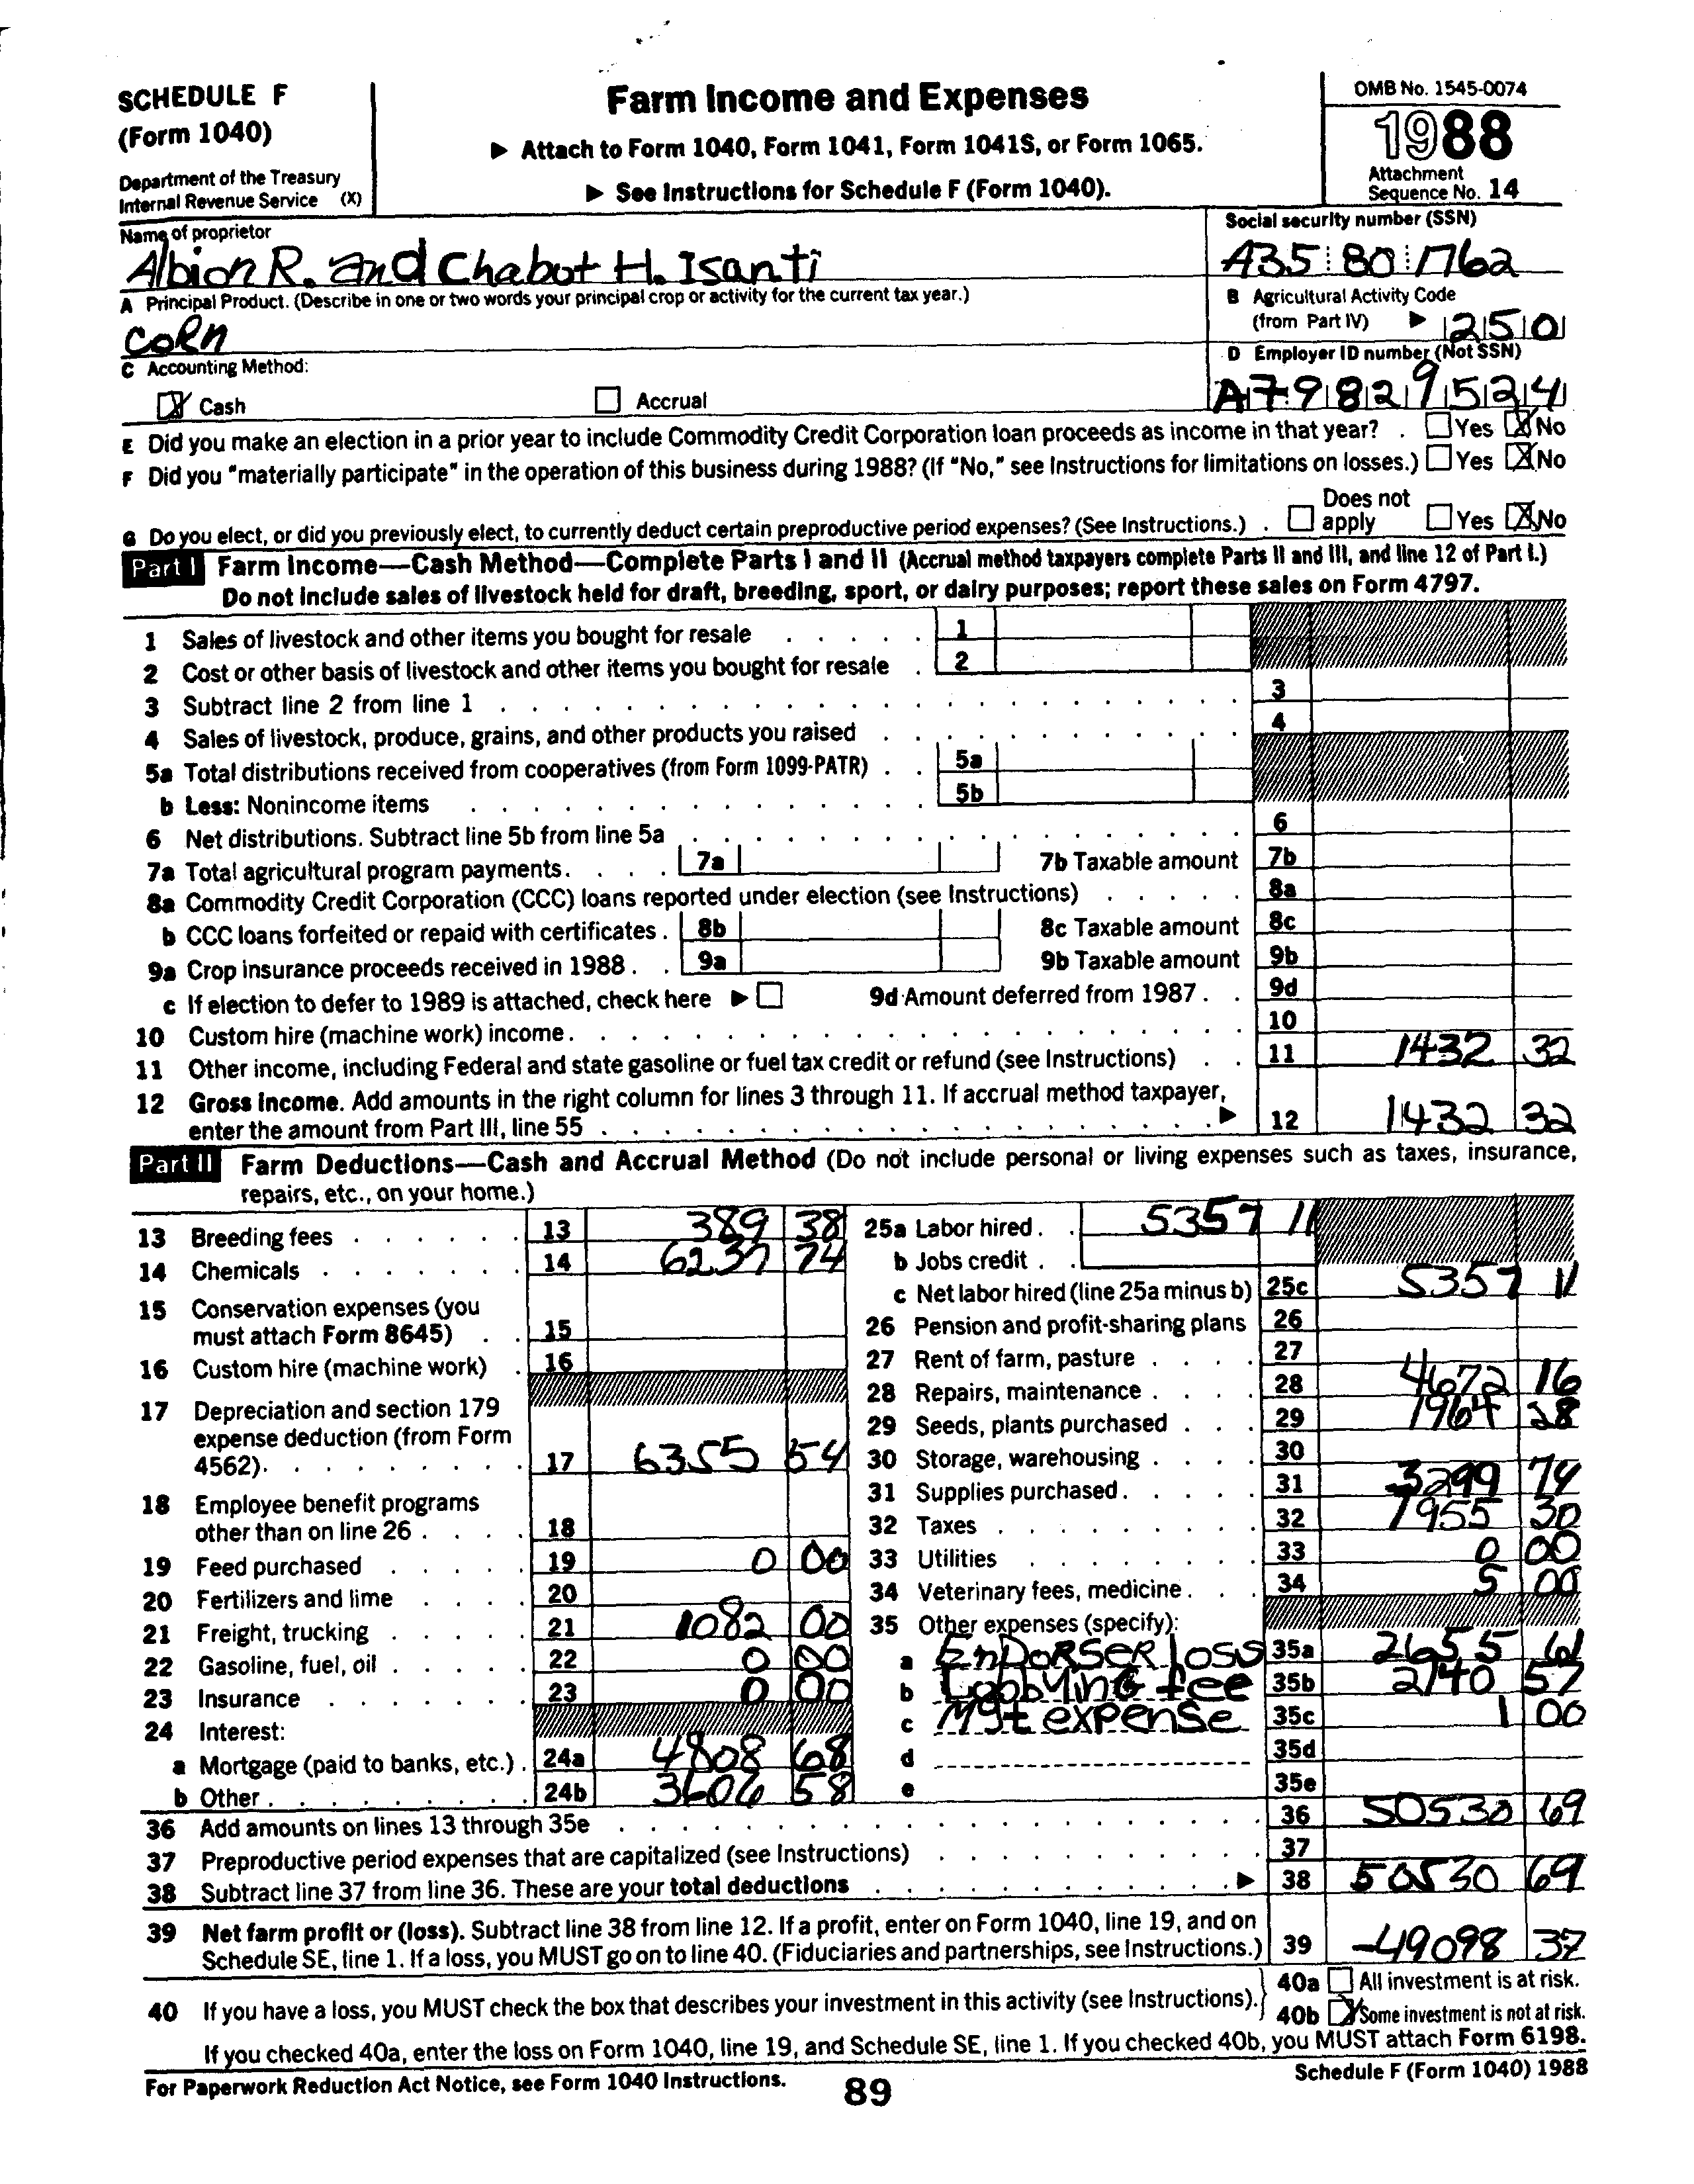 SCHEDULE F
(Form 1040)
Department of the Treasury
Internal Revenue Service (X)
Farm Income and Expenses
▶ Attach to Form 1040, Form 1041, Form 1041S, or Form 1065.
▶ See Instructions for Schedule F (Form 1040).
OMB No. 1545-0074
1988
Attachment
Sequence No. 14
Name of proprietor
Albion R. and Chabot H. Isanti
Social security number (SSN)
A35 80 1762
A Principal Product. (Describe in one or two words your principal crop or activity for the current tax year.)
CORn
B Agricultural Activity Code
(from Part IV) ▶ 250
C Accounting Method:
Cash Accrual
D Employer ID number (Not SSN)
A79829524
E Did you make an election in a prior year to include Commodity Credit Corporation loan proceeds as income in that year? . Yes X No
F Did you "materially participate" in the operation of this business during 1988? (If "No," see Instructions for limitations on losses.) Yes X No
G Do you elect, or did you previously elect, to currently deduct certain preproductive period expenses? (See Instructions.) . Does not apply Yes X No
Part I Farm Income—Cash Method—Complete Parts I and II (Accrual method taxpayers complete Parts II and III, and line 12 of Part I.)
Do not include sales of livestock held for draft, breeding, sport, or dairy purposes; report these sales on Form 4797.
1 Sales of livestock and other items you bought for resale 1
2 Cost or other basis of livestock and other items you bought for resale 2
3 Subtract line 2 from line 1 3
4 Sales of livestock, produce, grains, and other products you raised 4
5a Total distributions received from cooperatives (from Form 1099-PATR) 5a
b Less: Nonincome items 5b
6 Net distributions. Subtract line 5b from line 5a 6
7a Total agricultural program payments. 7a 7b Taxable amount 7b
8a Commodity Credit Corporation (CCC) loans reported under election (see Instructions) 8a
b CCC loans forfeited or repaid with certificates. 8b 8c Taxable amount 8c
9a Crop insurance proceeds received in 1988. 9a 9b Taxable amount 9b
c If election to defer to 1989 is attached, check here ▶ 9d Amount deferred from 1987. 9d
10 Custom hire (machine work) income. 10
11 Other income, including Federal and state gasoline or fuel tax credit or refund (see Instructions) 11 1432 32
12 Gross income. Add amounts in the right column for lines 3 through 11. If accrual method taxpayer,
enter the amount from Part III, line 55 ▶ 12 1432 32
Part II Farm Deductions—Cash and Accrual Method (Do not include personal or living expenses such as taxes, insurance,
repairs, etc., on your home.)
13 Breeding fees 13 389 38
14 Chemicals 14 6237 74
15 Conservation expenses (you
must attach Form 8645) 15
16 Custom hire (machine work) 16
17 Depreciation and section 179
expense deduction (from Form
4562). 17 6355 54
18 Employee benefit programs
other than on line 26 18
19 Feed purchased 19 0 00
20 Fertilizers and lime 20
21 Freight, trucking 21 1082 00
22 Gasoline, fuel, oil 22 0 00
23 Insurance 23 0 00
24 Interest:
a Mortgage (paid to banks, etc.) 24a 4808 68
b Other 24b 3606 58
25a Labor hired 5357 11
b Jobs credit
c Net labor hired (line 25a minus b) 25c 5357 11
26 Pension and profit-sharing plans 26
27 Rent of farm, pasture 27
28 Repairs, maintenance 28 4672 16
29 Seeds, plants purchased 29 1964 28
30 Storage, warehousing 30
31 Supplies purchased 31 3299 74
32 Taxes 32 1955 30
33 Utilities 33 0 00
34 Veterinary fees, medicine 34 5 00
35 Other expenses (specify):
a EnDORSER loss 35a 2655 61
b Lobbying fee 35b 2140 57
c Mgt expense 35c 1 00
d 35d
e 35e
36 Add amounts on lines 13 through 35e 36 50530 69
37 Preproductive period expenses that are capitalized (see Instructions) 37
38 Subtract line 37 from line 36. These are your total deductions ▶ 38 50530 69
39 Net farm profit or (loss). Subtract line 38 from line 12. If a profit, enter on Form 1040, line 19, and on
Schedule SE, line 1. If a loss, you MUST go on to line 40. (Fiduciaries and partnerships, see Instructions.) 39 -49098 37
40 If you have a loss, you MUST check the box that describes your investment in this activity (see Instructions).
40a All investment is at risk.
40b Some investment is not at risk.
If you checked 40a, enter the loss on Form 1040, line 19, and Schedule SE, line 1. If you checked 40b, you MUST attach Form 6198.
For Paperwork Reduction Act Notice, see Form 1040 Instructions.
89
Schedule F (Form 1040) 1988